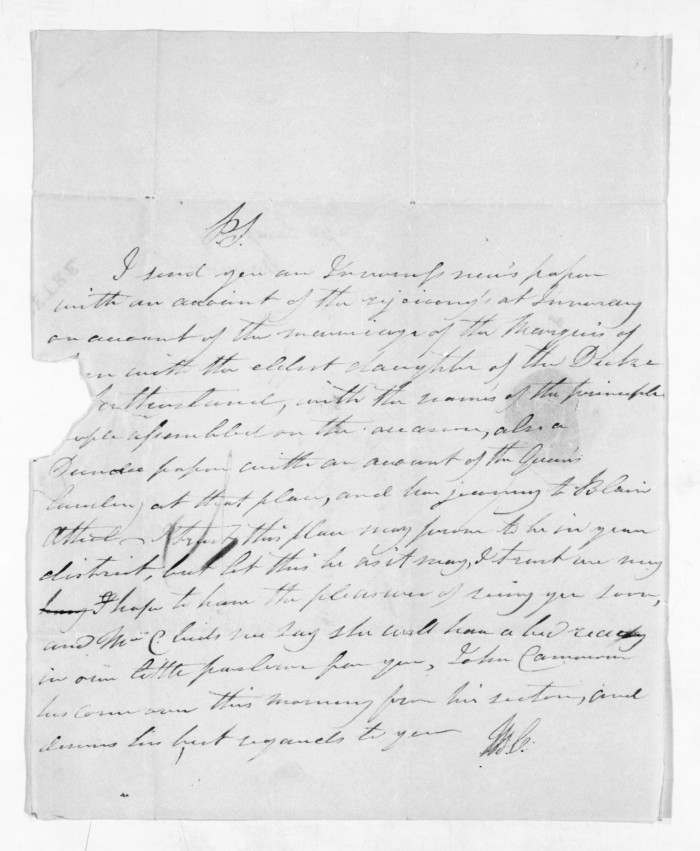 P.S.
I send you an Inverness news paper
with an account of the rejoicing's at Inverary
on account of the marriage of the Marquis of
rn with the eldest daughter of the Duke
Sutherland, with the names of the principle
ople assembled on the occasion, also a
Dundee paper with an account of the Queens
landing at that place, and her journey to Blair
Athol I trust this place may prove to be in your
district, but let this be as it may, I trust we may
I hope to have the pleasure of seeing you soon,
and Mrs C. bids me say she will have a bed ready
in our little parlour for you, John Cameron
has come over this morning from his section, and
desires his best regards to you